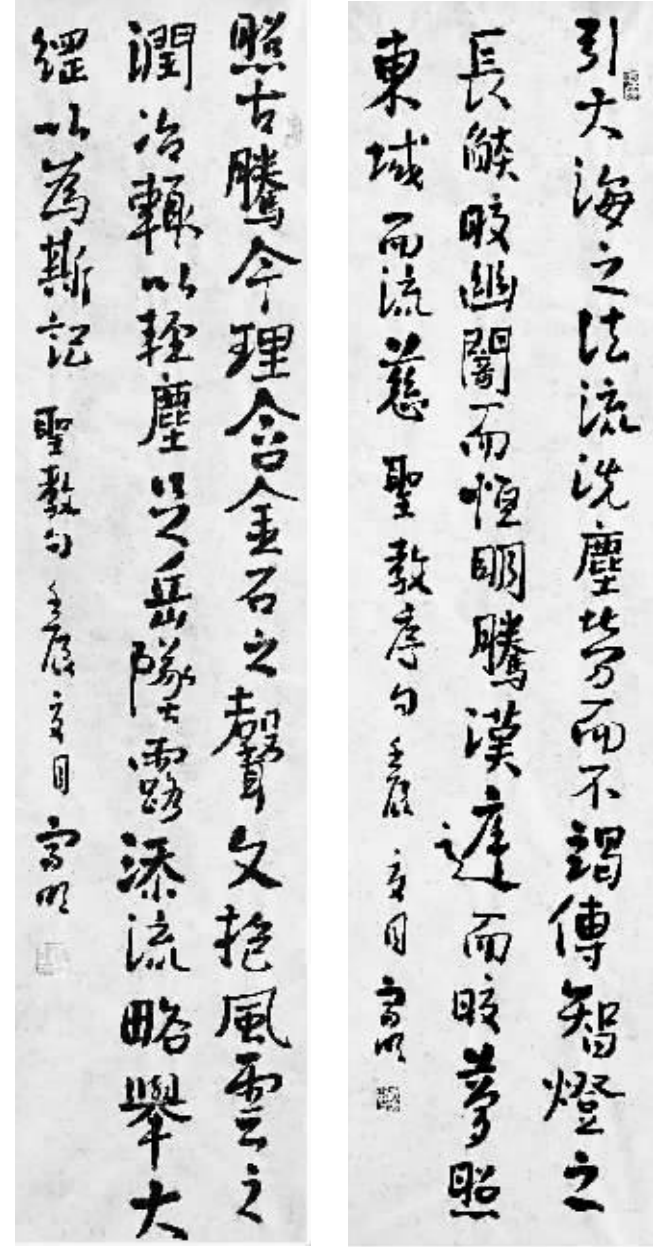 引大海之法流洗塵勞而不竭傳智燈之
長燄皎幽闇而恒明騰漢庭而皎夢照
東域而流慈 聖教序句 壬辰 夏月
照古騰今理含金石之聲文抱風雲之
潤治輒以輕塵足岳墜露添流略舉大
綱以為斯記 聖教句 壬辰 夏月